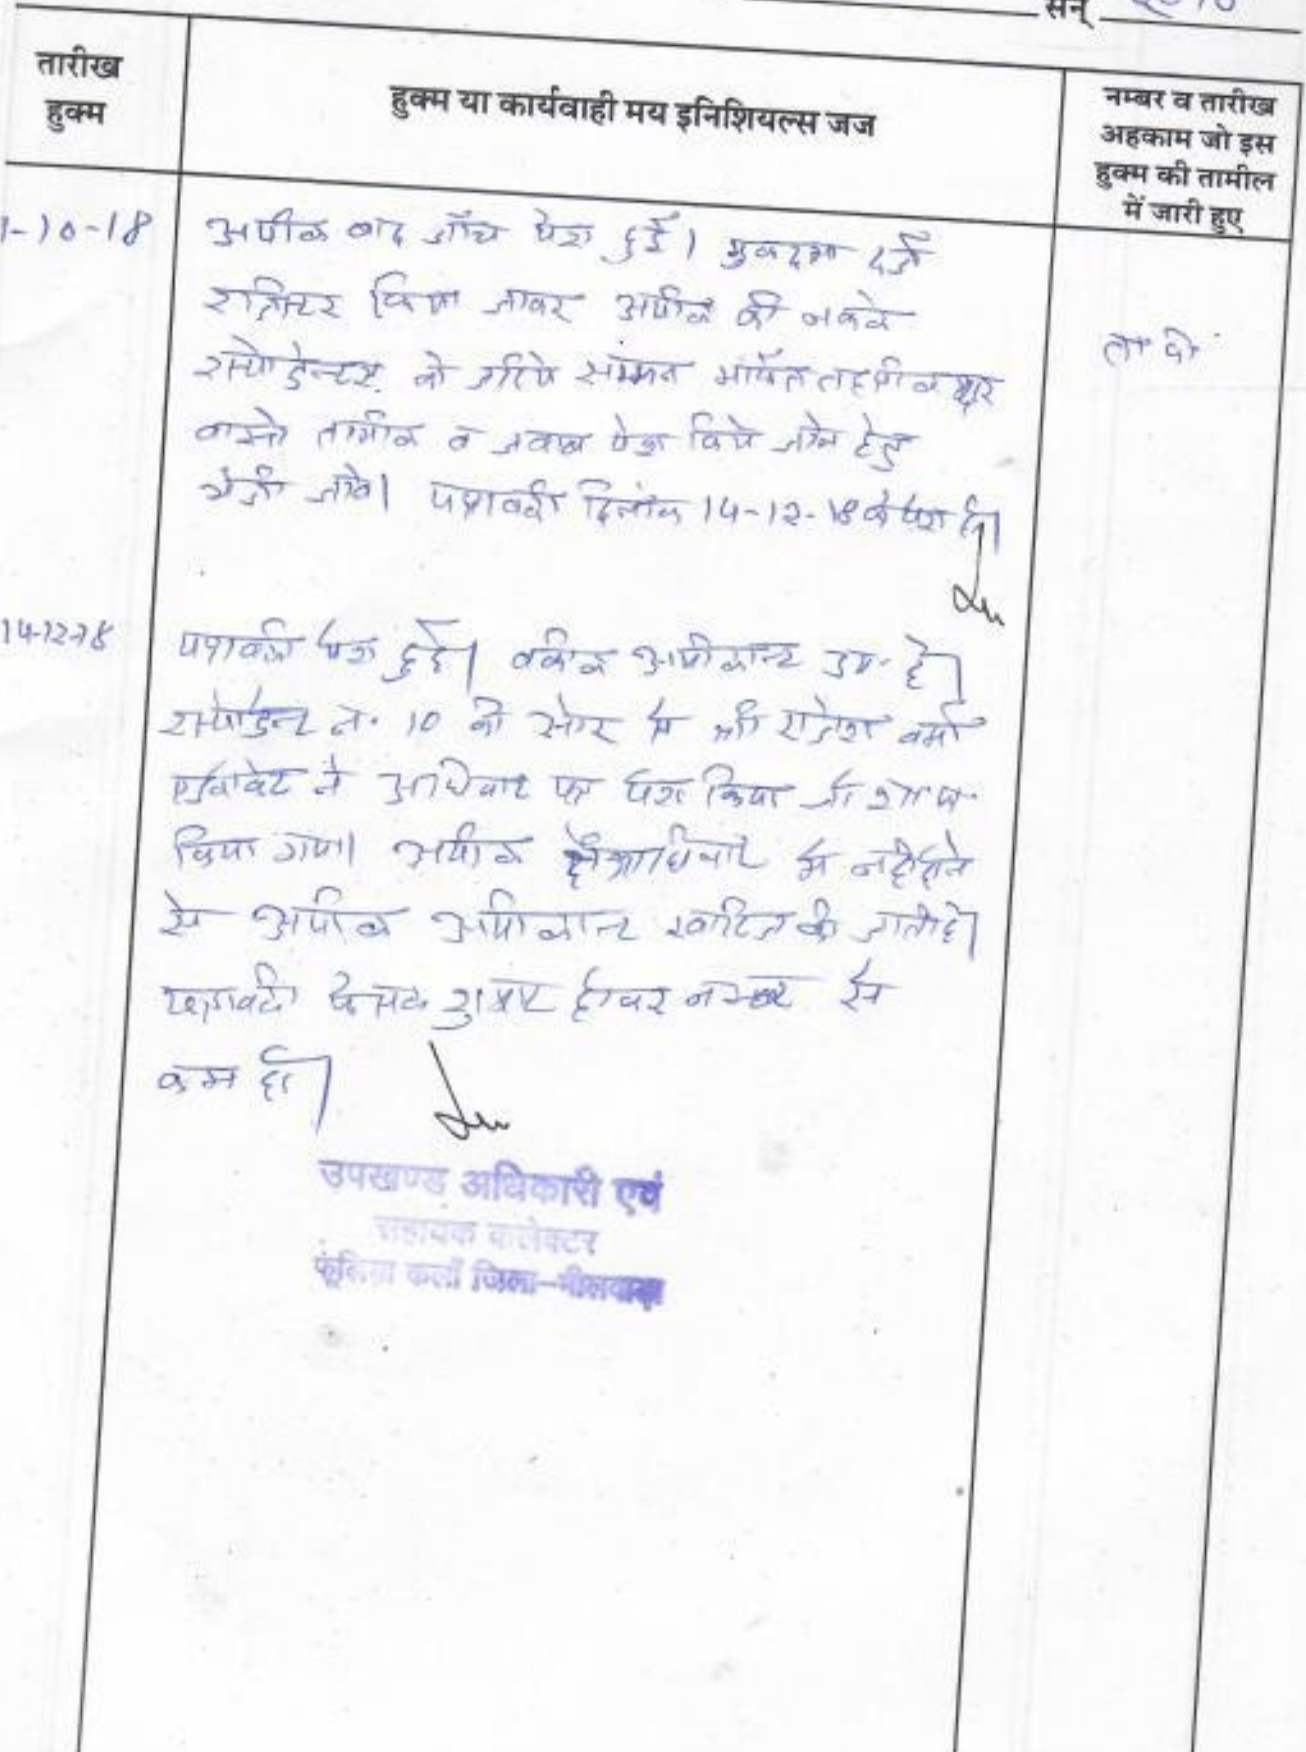 सन्
तारीख
हुक्म
हुक्म या कार्यवाही मय इनिशियल्स जज
नम्बर व तारीख
अहकाम जो इस
हुक्म की तामील
में जारी हुए
-10-18
अपील बाद जाँच पेश हुई। मुकदमा दर्ज
रजिस्टर किया जाकर अपील की नकले
रेस्पोडेन्टस को जरिये सम्मन मार्फत तहसीलदार
वास्ते तामील व जवाब पेश किये जाने हेतु
भेजी जावे। पत्रावली दिनांक 14-12-18 को पेश हो।
14-12-18
पत्रावली पेश हुई। वकील अपीलान्ट उप. है।
रेस्पोडेन्ट न. 10 की ओर से श्री राजेश वर्मा
एडवोकेट ने अधिकार पत्र पेश किया जो शा.प.
किया गया। अपील क्षेत्राधिकार में नहीं होने
से अपील अपीलान्ट खारिज की जाती है।
पत्रावली फैसल शुमार होकर नम्बर से
कम हो।
उपखण्ड अधिकारी एवं
सहायक कलेक्टर
फूलिया कलाँ जिला-भीलवाड़ा